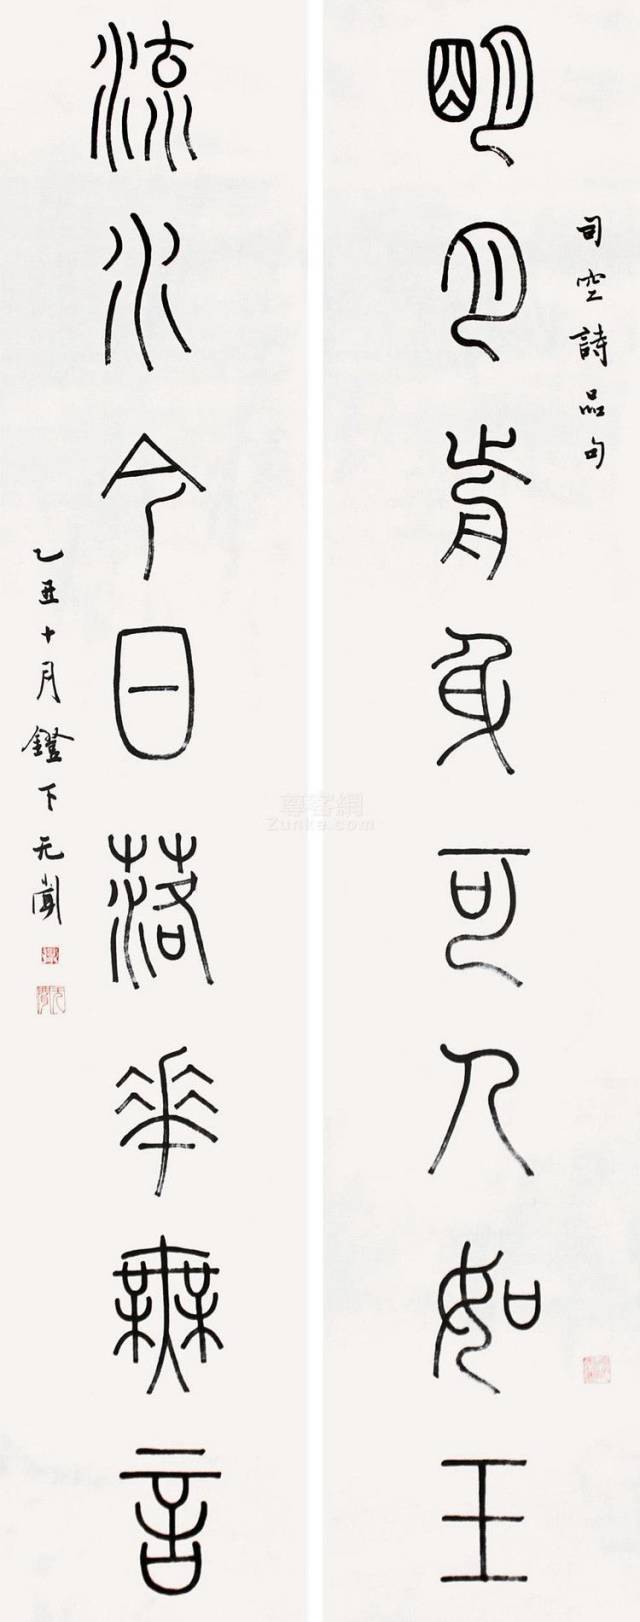 司空詩品句
明月前身可人如玉
流水今日落花無言
乙丑十月鐙下无聞
尊客網
Zunke.com